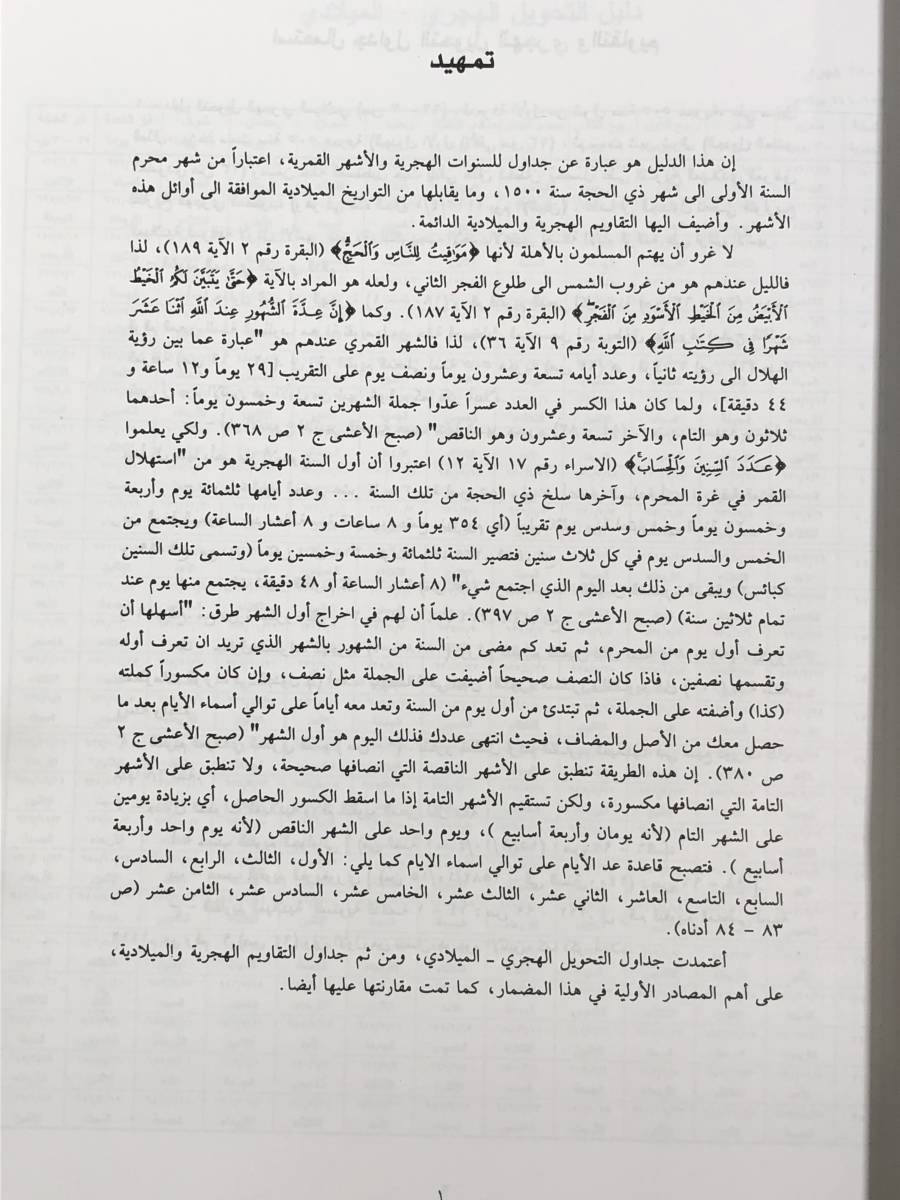 تمهيد
إن هذا الدليل هو عبارة عن جداول للسنوات الهجرية والأشهر القمرية، اعتباراً من شهر محرم
السنة الأولى الى شهر ذي الحجة سنة ١٥٠٠، وما يقابلها من التواريخ الميلادية الموافقة الى أوائل هذه
الأشهر. وأضيف اليها التقاويم الهجرية والميلادية الدائمة.
لا غرو أن يهتم المسلمون بالأهلة لأنها ﴿مَوَاقِيتُ لِلنَّاسِ وَالْحَجِّ﴾ (البقرة رقم ٢ الآية ١٨٩)، لذا
فالليل عندهم هو من غروب الشمس الى طلوع الفجر الثاني، ولعله هو المراد بالآية ﴿حَتَّىٰ يَتَبَيَّنَ لَكُمُ الْخَيْطُ
الْأَبْيَضُ مِنَ الْخَيْطِ الْأَسْوَدِ مِنَ الْفَجْرِ﴾ (البقرة رقم ٢ الآية ١٨٧). وكما ﴿إِنَّ عِدَّةَ الشُّهُورِ عِندَ اللَّهِ اثْنَا عَشَرَ
شَهْرًا فِي كِتَابِ اللَّهِ﴾ (التوبة رقم ٩ الآية ٣٦)، لذا فالشهر القمري عندهم هو "عبارة عما بين رؤية
الهلال الى رؤيته ثانياً، وعدد أيامه تسعة وعشرون يوماً ونصف يوم على التقريب [٢٩ يوماً و١٢ ساعة و
٤٤ دقيقة]، ولما كان هذا الكسر في العدد عسراً عدّوا جملة الشهرين تسعة وخمسون يوماً: أحدهما
ثلاثون وهو التام، والآخر تسعة وعشرون وهو الناقص" (صبح الأعشى ج ٢ ص ٣٦٨). ولكي يعلموا
﴿عَدَدَ السِّنِينَ وَالْحِسَابَ﴾ (الاسراء رقم ١٧ الآية ١٢) اعتبروا أن أول السنة الهجرية هو من "استهلال
القمر في غرة المحرم، وآخرها سلخ ذي الحجة من تلك السنة ... وعدد أيامها ثلثمائة يوم وأربعة
وخمسون يوماً وخمس وسدس يوم تقريباً (أي ٣٥٤ يوماً و ٨ ساعات و ٨ أعشار الساعة) ويجتمع من
الخمس والسدس يوم في كل ثلاث سنين فتصير السنة ثلثمائة وخمسة وخمسين يوماً (وتسمى تلك السنين
كبائس) ويبقى من ذلك بعد اليوم الذي اجتمع شيء" (٨ أعشار الساعة أو ٤٨ دقيقة، يجتمع منها يوم عند
تمام ثلاثين سنة) (صبح الأعشى ج ٢ ص ٣٩٧). علماً أن لهم في اخراج أول الشهر طرق: "أسهلها أن
تعرف أول يوم من المحرم، ثم تعد كم مضى من السنة من الشهور بالشهر الذي تريد ان تعرف أوله
وتقسمها نصفين، فاذا كان النصف صحيحاً أضيفت على الجملة مثل نصف، وإن كان مكسوراً كملته
(كذا) وأضفته على الجملة، ثم تبتدئ من أول يوم من السنة وتعد معه أياماً على توالي أسماء الأيام بعد ما
حصل معك من الأصل والمضاف، فحيث انتهى عددك فذلك اليوم هو أول الشهر" (صبح الأعشى ج ٢
ص ٣٨٠). إن هذه الطريقة تنطبق على الأشهر الناقصة التي انصافها صحيحة، ولا تنطبق على الأشهر
التامة التي انصافها مكسورة، ولكن تستقيم الأشهر التامة إذا ما اسقط الكسور الحاصل، أي بزيادة يومين
على الشهر التام (لأنه يومان وأربعة أسابيع )، ويوم واحد على الشهر الناقص (لأنه يوم واحد وأربعة
أسابيع ). فتصبح قاعدة عد الأيام على توالي اسماء الايام كما يلي: الأول، الثالث، الرابع، السادس،
السابع، التاسع، العاشر، الثاني عشر، الثالث عشر، الخامس عشر، السادس عشر، الثامن عشر (ص
٨٣ - ٨٤ أدناه).
أعتمدت جداول التحويل الهجري ـ الميلادي، ومن ثم جداول التقاويم الهجرية والميلادية،
على أهم المصادر الأولية في هذا المضمار، كما تمت مقارنتها عليها أيضا.
١